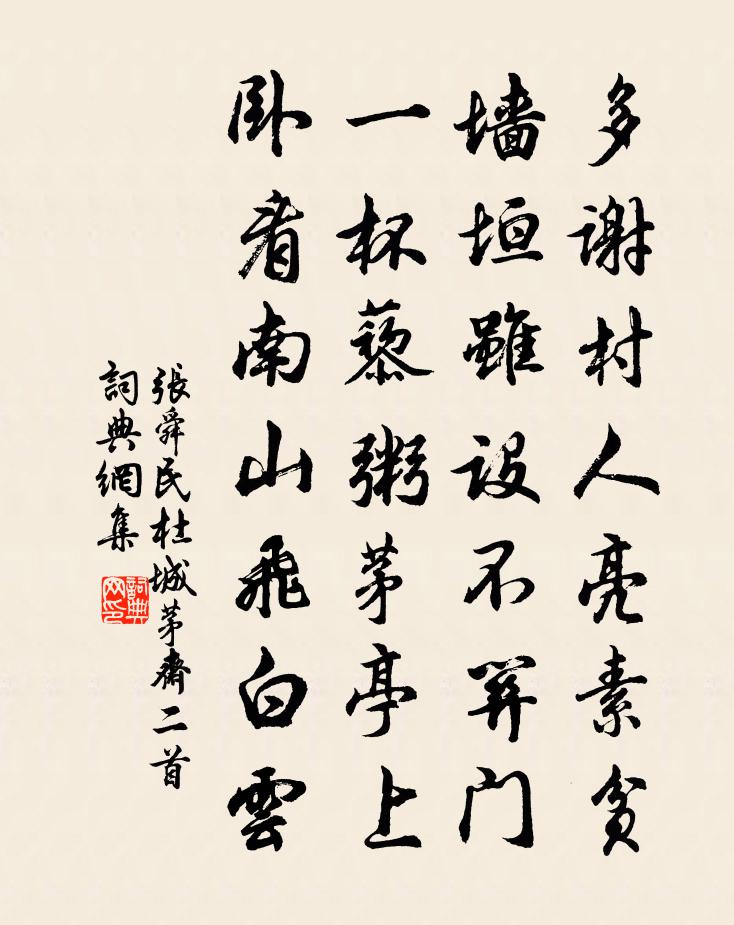 多谢村人亮素贫
墙垣雖设不關门
一杯藜粥茅亭上
卧看南山飛白雲
張舜民杜城茅齋二首
詞典網集
詞典網印